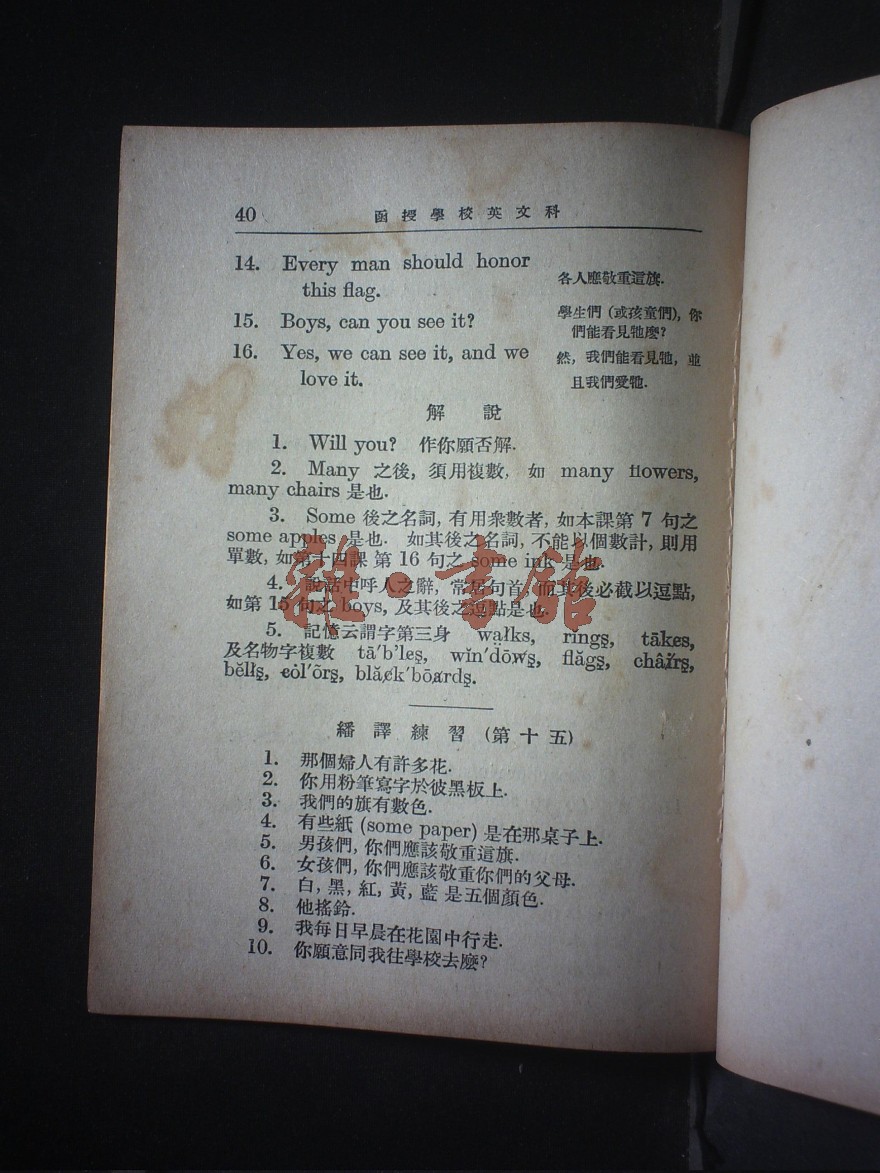 40 函授學校英文科
14. Every man should honor 各人應敬重這旗.
this flag.
15. Boys, can you see it? 學生們 (或孩童們), 你
們能看見牠麽?
16. Yes, we can see it, and we 然, 我們能看見牠, 並
love it. 且我們愛牠.
解說
1. Will you? 作你願否解.
2. Many 之後, 須用複數, 如 many flowers,
many chairs 是也.
3. Some 後之名詞, 有用衆數者, 如本課第 7 句之
some apples 是也. 如其後之名詞, 不能以個數計, 則用
單數, 如第十四課第 16 句之 some ink 是也.
4. 說話中呼人之辭, 常居句首, 而其後必截以逗點,
如第 15 句之 boys, 及其後之逗點是也.
5. 記憶云謂字第三身 wa̤lks, rings̱, tākes,
及名物字複數 tā′b'les̱, wĭn′dōws̱, flăgs̱, châirs̱,
bĕlls̱, cȯl′õrs̱, blăck′bōards̱.
繙譯練習 (第十五)
1. 那個婦人有許多花.
2. 你用粉筆寫字於彼黑板上.
3. 我們的旗有數色.
4. 有些紙 (some paper) 是在那桌子上.
5. 男孩們, 你們應該敬重這旗.
6. 女孩們, 你們應該敬重你們的父母.
7. 白, 黑, 紅, 黃, 藍 是五個顏色.
8. 他搖鈴.
9. 我每日早晨在花園中行走.
10. 你願意同我往學校去麽?
雜·書館